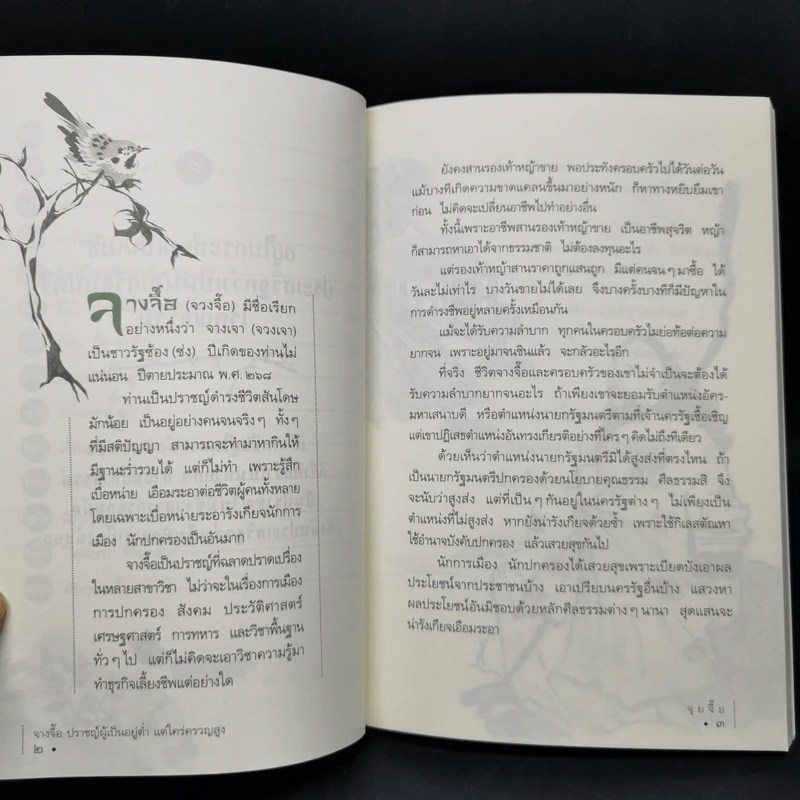 จางจื๊อ (จวงจื๊อ) มีชื่อเรียก
อย่างหนึ่งว่า จางเจา (จวงเจา)
เป็นชาวรัฐซ้อง (ซ่ง) ปีเกิดของท่านไม่
แน่นอน ปีตายประมาณ พ.ศ. ๒๖๘
ท่านเป็นปราชญ์ดำรงชีวิตสันโดษ
มักน้อย เป็นอยู่อย่างคนจนจริงๆ ทั้งๆ
ที่มีสติปัญญา สามารถจะทำมาหากินให้
มีฐานะร่ำรวยได้ แต่ก็ไม่ทำ เพราะรู้สึก
เบื่อหน่าย เอือมระอาต่อชีวิตผู้คนทั้งหลาย
โดยเฉพาะเบื่อหน่ายระอารังเกียจนักการ
เมือง นักปกครองเป็นอันมาก
จางจื๊อเป็นปราชญ์ที่ฉลาดปราดเปรื่อง
ในหลายสาขาวิชา ไม่ว่าจะในเรื่องการเมือง
การปกครอง สังคม ประวัติศาสตร์
เศรษฐศาสตร์ การทหาร และวิชาพื้นฐาน
ทั่วๆ ไป แต่ก็ไม่คิดจะเอาวิชาความรู้มา
ทำธุรกิจเลี้ยงชีพแต่อย่างใด
จางจื๊อ ปราชญ์ผู้เป็นอยู่ต่ำ แต่ใคร่ครวญสูง
๒ •
ยังคงสานรองเท้าหญ้าขาย พอประทังครอบครัวไปได้วันต่อวัน
แม้บางทีเกิดความขาดแคลนขึ้นมาอย่างหนัก ก็หาทางหยิบยืมเขา
ก่อน ไม่คิดจะเปลี่ยนอาชีพไปทำอย่างอื่น
ทั้งนี้เพราะอาชีพสานรองเท้าหญ้าขาย เป็นอาชีพสุจริต หญ้า
ก็สามารถหาเอาได้จากธรรมชาติ ไม่ต้องลงทุนอะไร
แต่รองเท้าหญ้าสานราคาถูกแสนถูก มีแต่คนจนๆ มาซื้อ ได้
วันละไม่เท่าไร บางวันขายไม่ได้เลย จึงบางครั้งบางทีก็มีปัญหาใน
การดำรงชีพอยู่หลายครั้งเหมือนกัน
แม้จะได้รับความลำบาก ทุกคนในครอบครัวไม่ย่อท้อต่อความ
ยากจน เพราะอยู่มาจนชินแล้ว จะกลัวอะไรอีก
ที่จริง ชีวิตจางจื๊อและครอบครัวของเขาไม่จำเป็นจะต้องได้
รับความลำบากยากจนอะไร ถ้าเพียงเขาจะยอมรับตำแหน่งอัคร-
มหาเสนาบดี หรือตำแหน่งนายกรัฐมนตรีตามที่เจ้านครรัฐเชื้อเชิญ
แต่เขาปฏิเสธตำแหน่งอันทรงเกียรติอย่างที่ใครๆ คิดไม่ถึงทีเดียว
ด้วยเห็นว่าตำแหน่งนายกรัฐมนตรีมิได้สูงส่งที่ตรงไหน ถ้า
เป็นนายกรัฐมนตรีปกครองด้วยนโยบายคุณธรรม ศีลธรรมสิ จึง
จะนับว่าสูงส่ง แต่ที่เป็นๆ กันอยู่ในนครรัฐต่างๆ ไม่เพียงเป็น
ตำแหน่งที่ไม่สูงส่ง หากยังน่ารังเกียจด้วยซ้ำ เพราะใช้กิเลสตัณหา
ใช้อำนาจบังคับปกครอง แล้วเสวยสุขกันไป
นักการเมือง นักปกครองได้เสวยสุขเพราะเบียดบังเอาผล
ประโยชน์จากประชาชนบ้าง เอาเปรียบนครรัฐอื่นบ้าง แสวงหา
ผลประโยชน์อันมิชอบด้วยหลักศีลธรรมต่างๆ นานา สุดแสนจะ
น่ารังเกียจเอือมระอา
จุยจื๊อ
• ๓